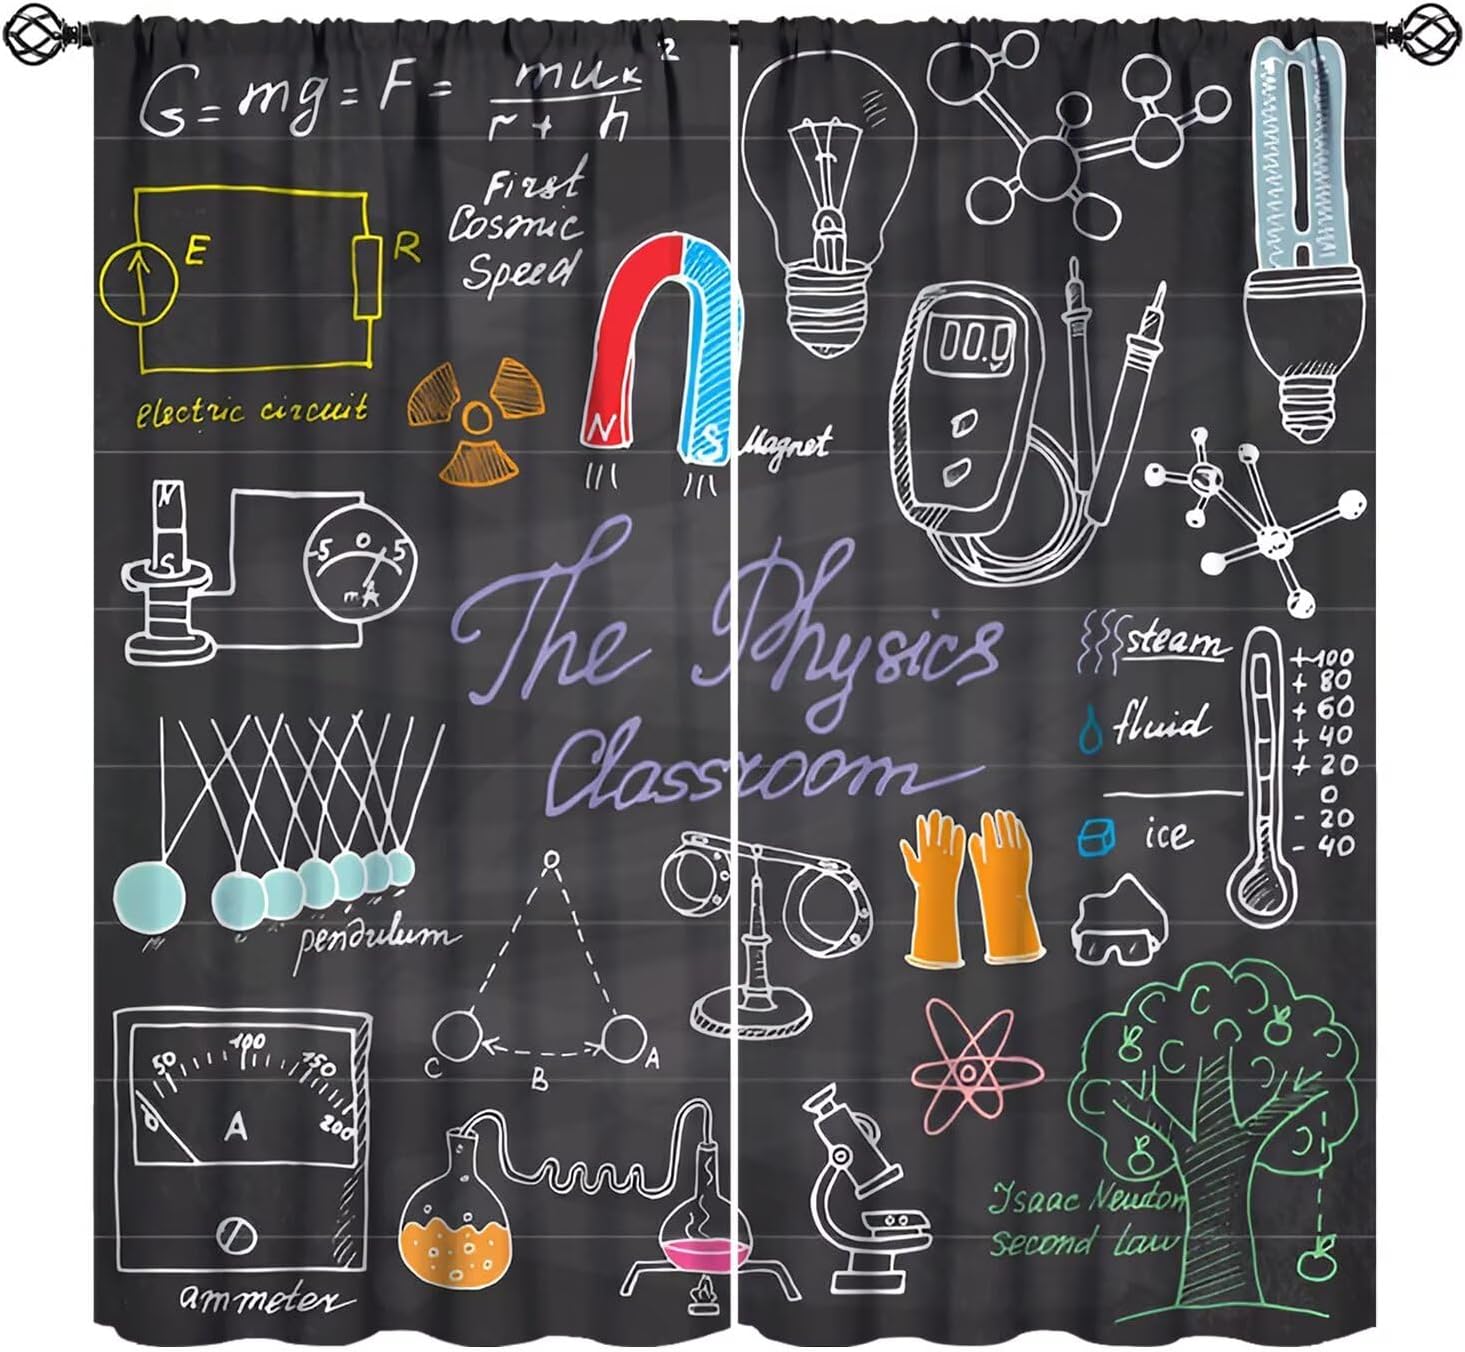 G = mg = F = muk² / r + h
First
Cosmic
Speed
E
R
electric circuit
N
S
Magnet
00.0
N
S
-5 0 5
mA
The Physics
Classroom
steam
fluid
ice
+100
+ 80
+ 60
+ 40
+ 20
0
- 20
- 40
pendulum
C
B
A
0 50 100 150 200
A
ammeter
Isaac Newton
second law